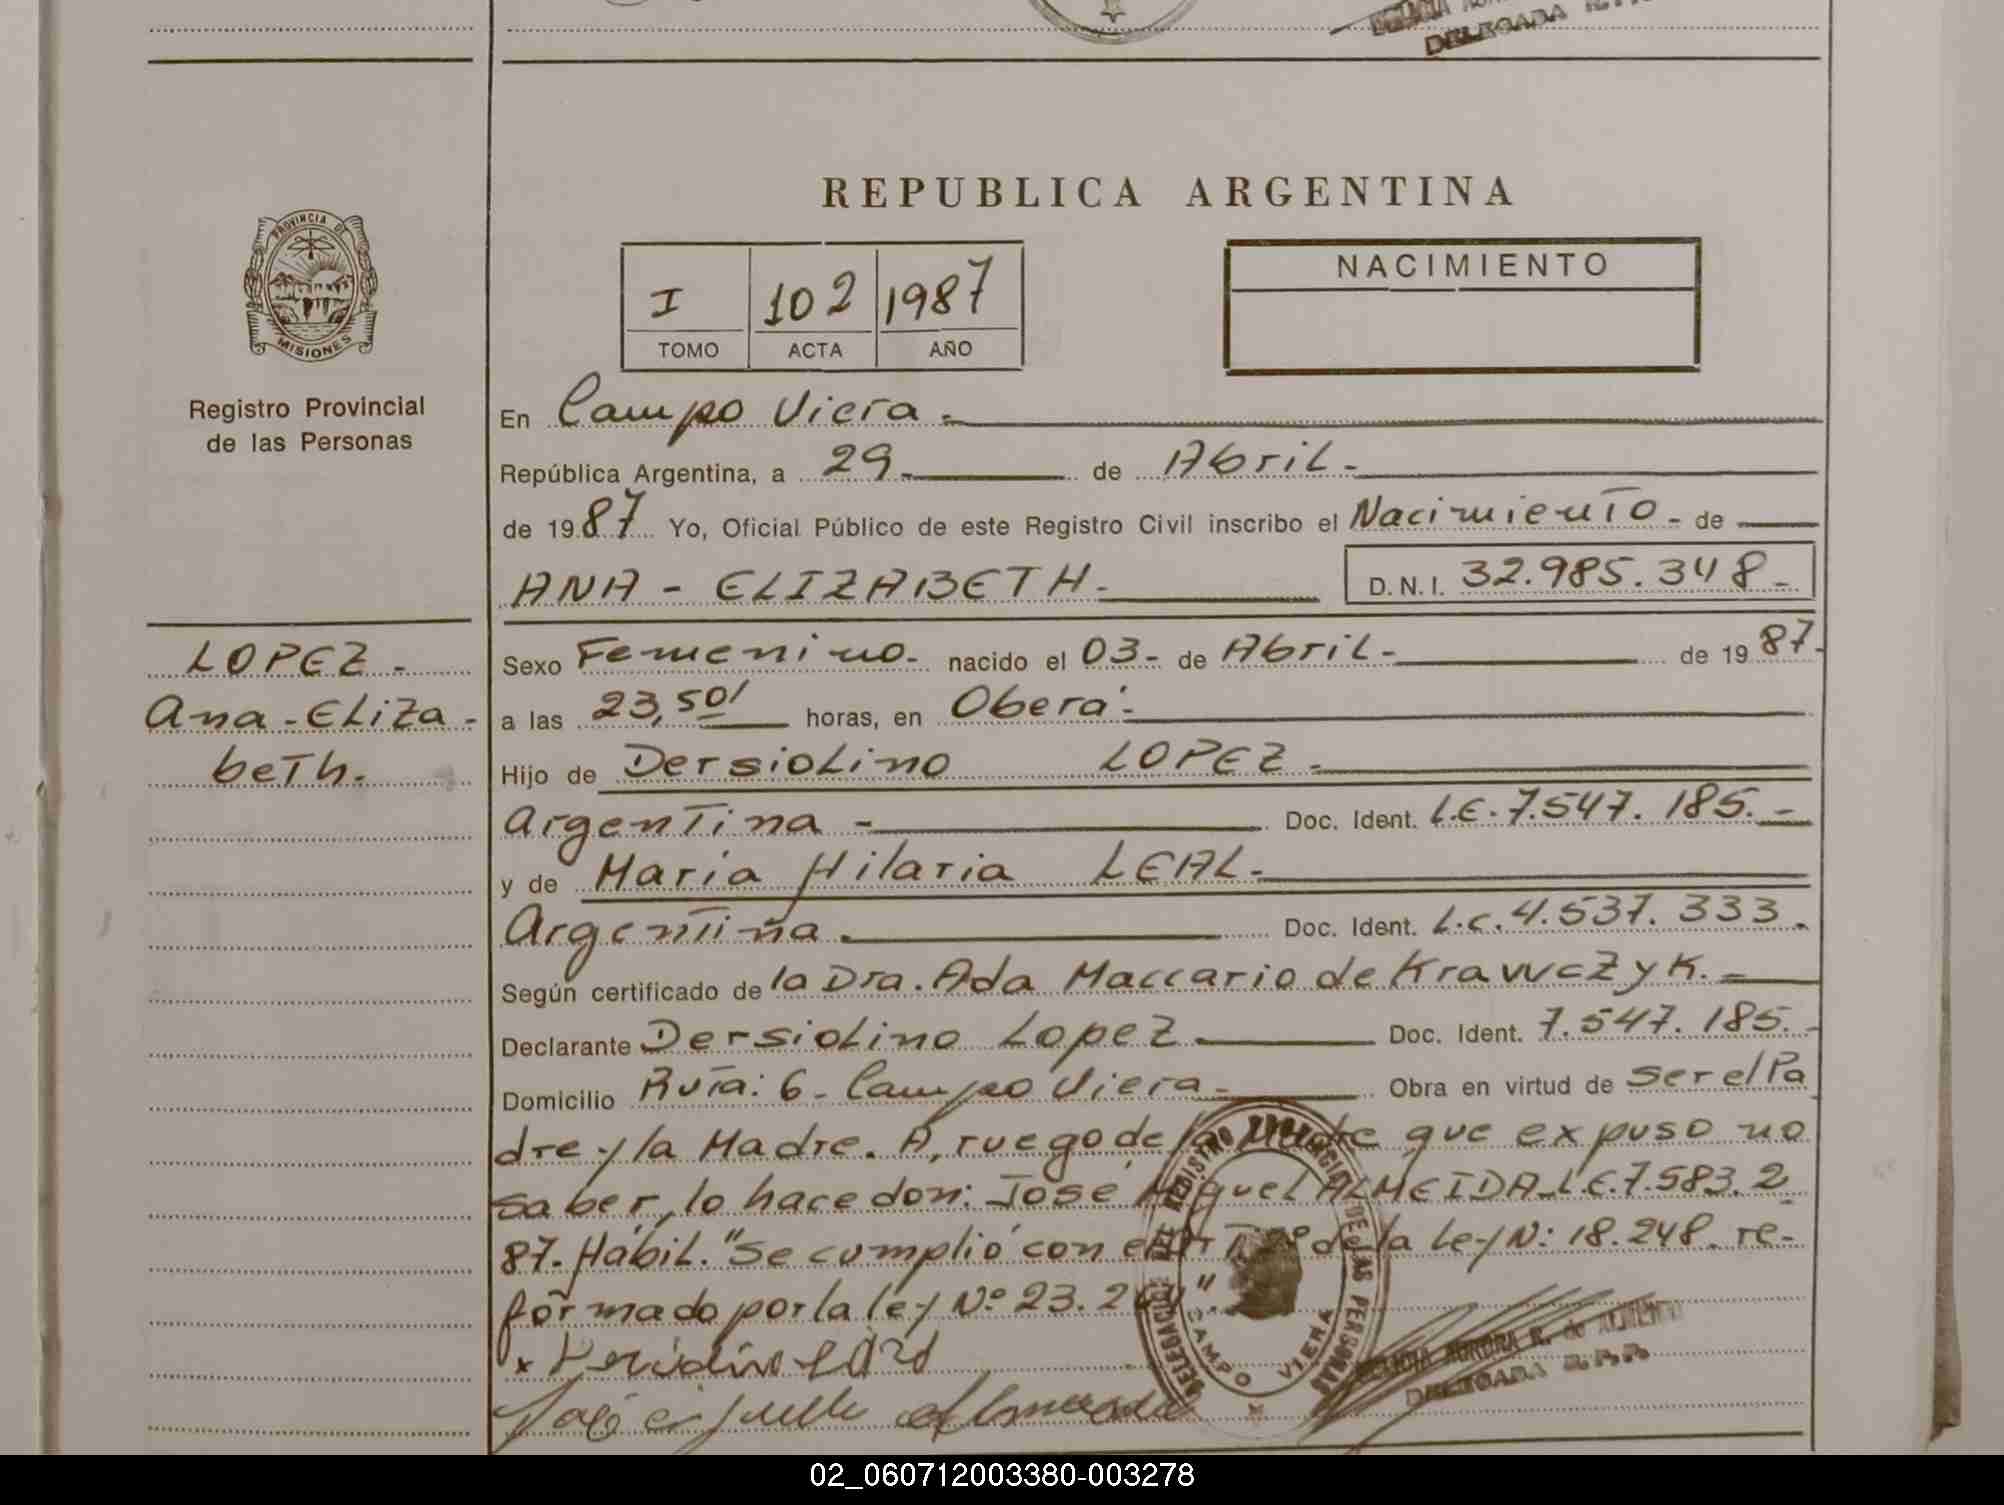 DELEGADA
REPUBLICA ARGENTINA
PROVINCIA DE
MISIONES
Registro Provincial
de las Personas
I 102 1987
TOMO ACTA AÑO
NACIMIENTO
En Campo Viera.
República Argentina, a 29. de Abril.
de 1987 Yo, Oficial Público de este Registro Civil inscribo el Nacimiento - de
ANA - ELIZABETH. D.N.I. 32.985.348-
LOPEZ -
Ana - Eliza -
beth.
Sexo Femenino. nacido el 03- de Abril. de 1987.
a las 23,50' horas, en Oberá.
Hijo de Dersiolino LOPEZ.
Argentina - Doc. Ident. L.E. 7.547.185.-
y de María Hilaria LEAL.
Argentina. Doc. Ident. L.C. 4.537.333.
Según certificado de la Dra. Ada Maccario de Krawczyk.-
Declarante Dersiolino Lopez Doc. Ident. 7.547.185.-
Domicilio Ruta: 6 - Campo Viera - Obra en virtud de ser el Pa
dre y la Madre. A, ruego de la Madre que expuso no
saber, lo hace don: José Miguel ALMEIDA L.E. 7.583.2
87. Hábil. "Se cumplió con el de la ley N: 18.248. re-
formado por la ley Nº 23.264".
DELEGACION DE REGISTRO PROVINCIAL DE LAS PERSONAS
CAMPO VIERA
AURORA R. de ALMEIDA
DELEGADA R.P.P.
02_060712003380-003278